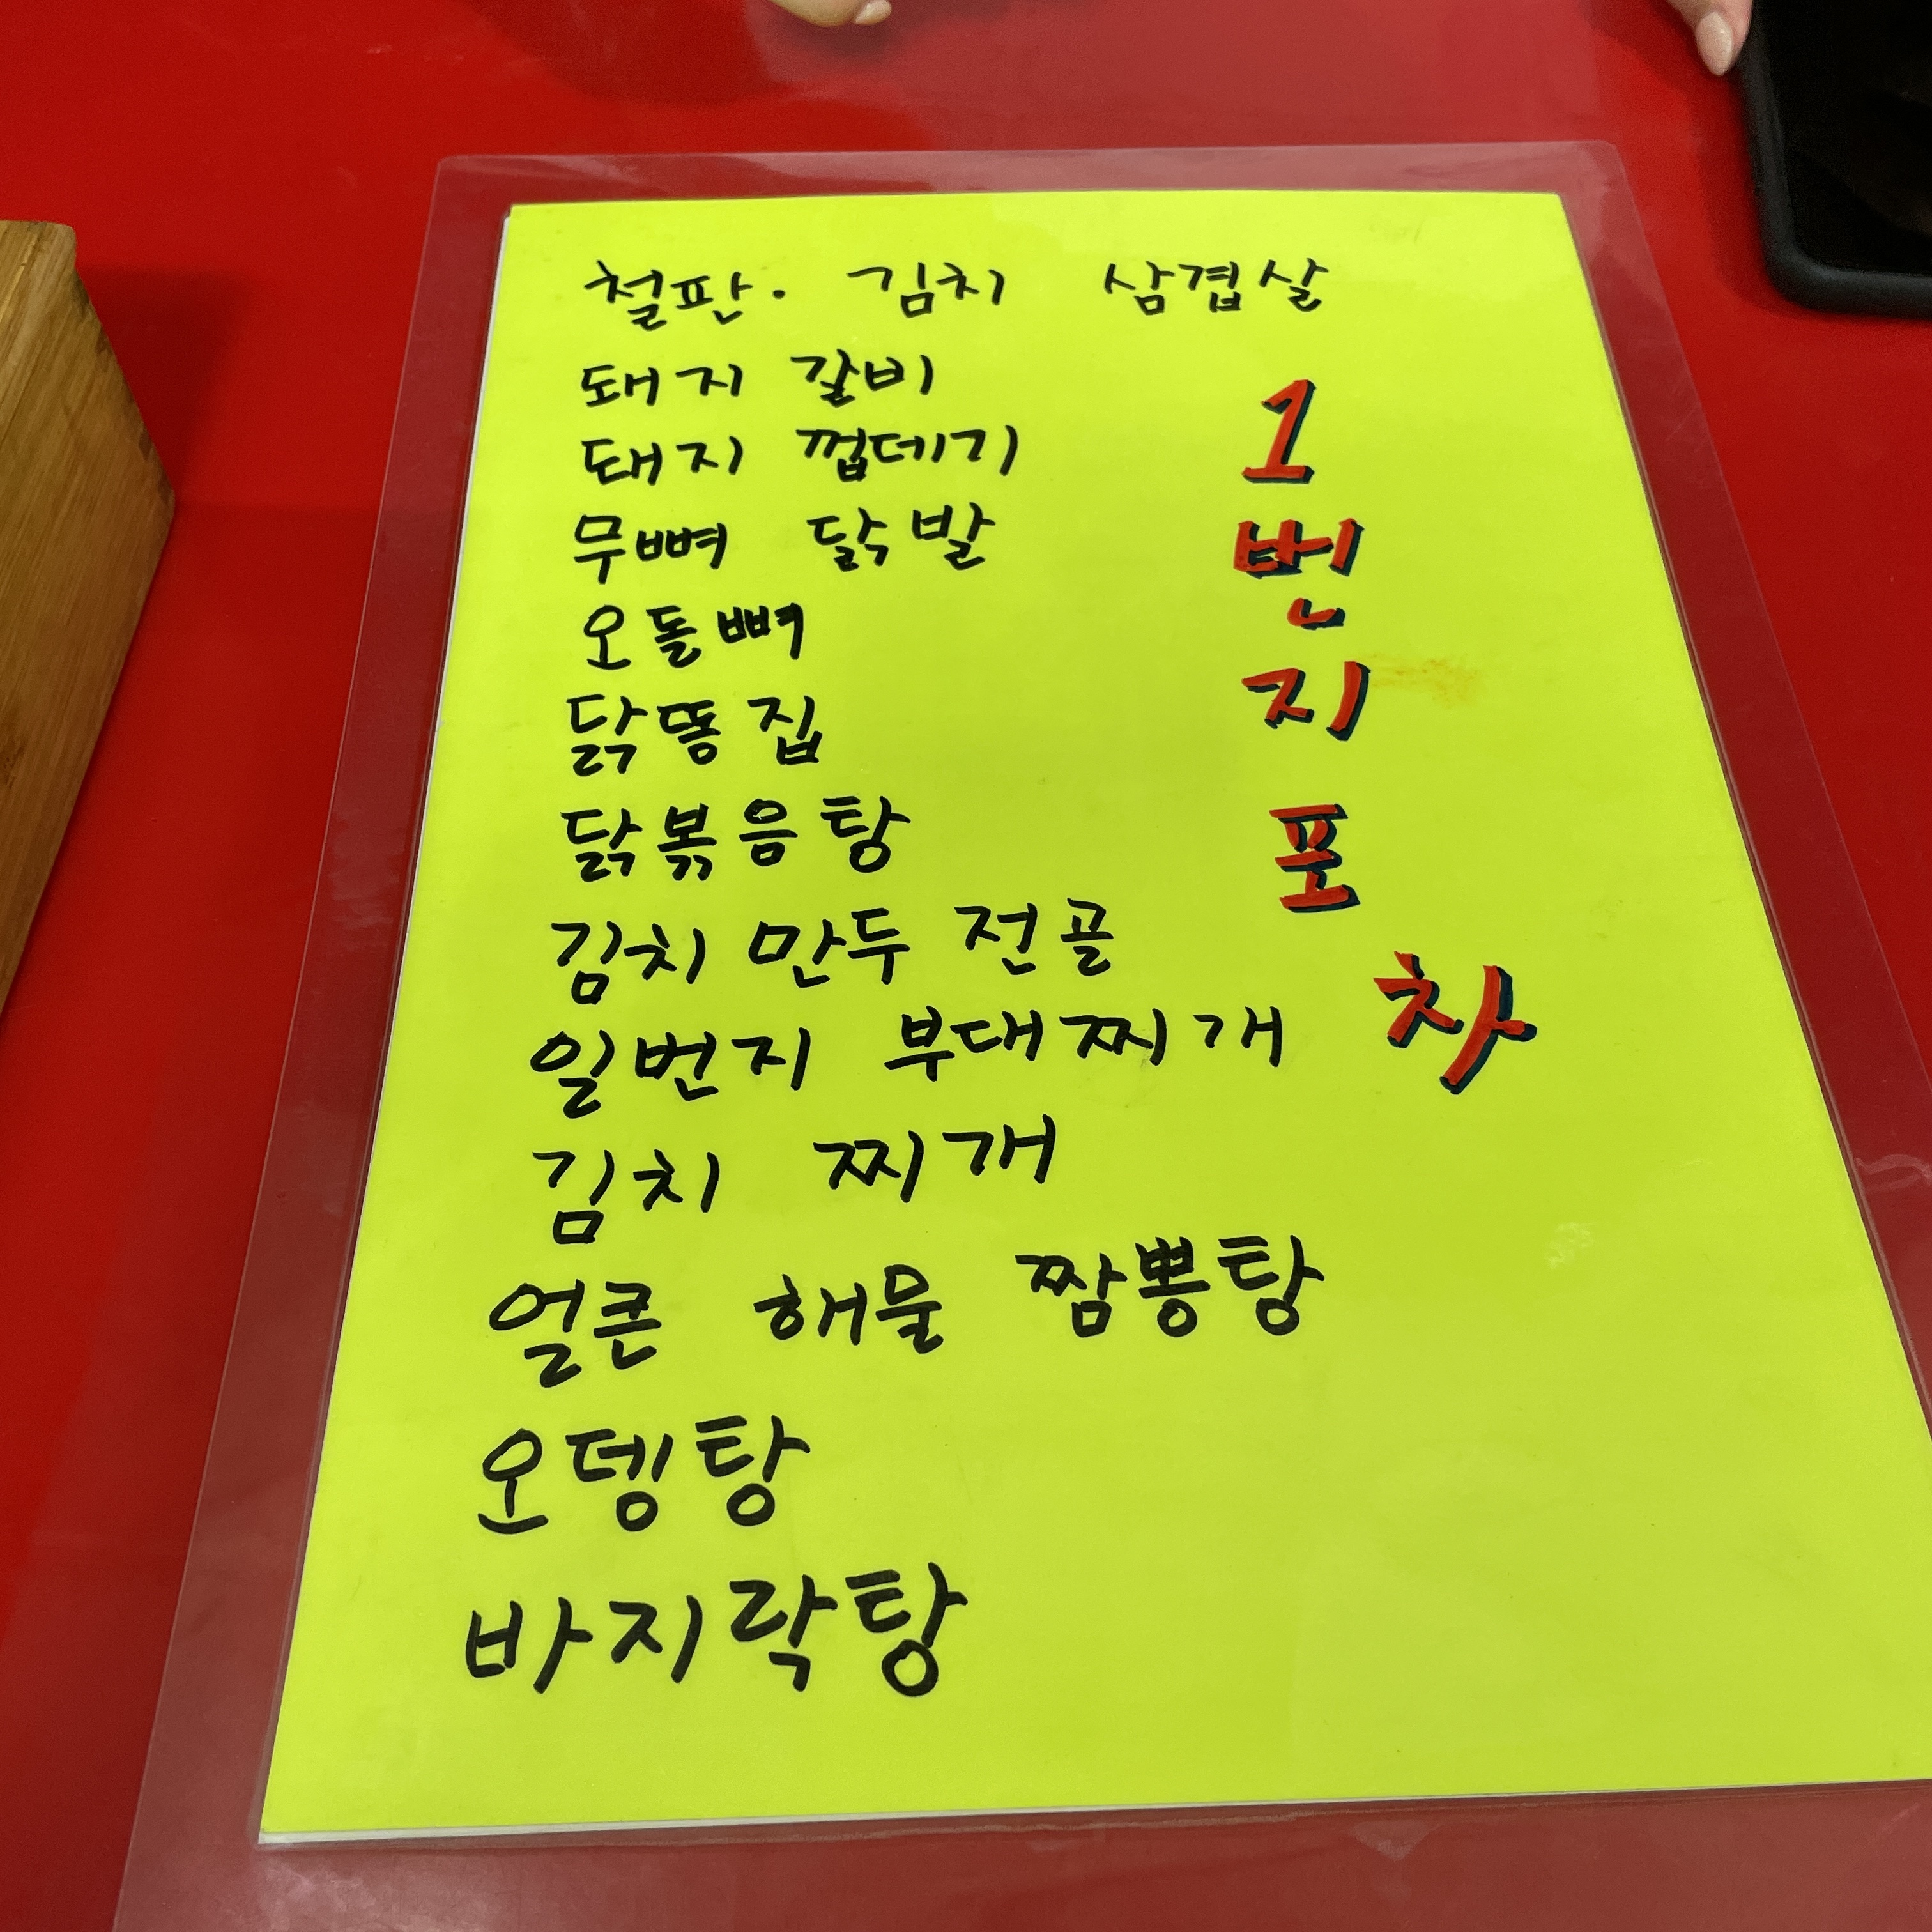 철판. 김치 삼겹살
돼지 갈비
돼지 껍데기
무뼈 닭발
오돌뼈
닭똥집
닭볶음탕
김치 만두 전골
일번지 부대찌개
김치 찌개
얼큰 해물 짬뽕탕
오뎅탕
바지락탕
1
번
지
포
차